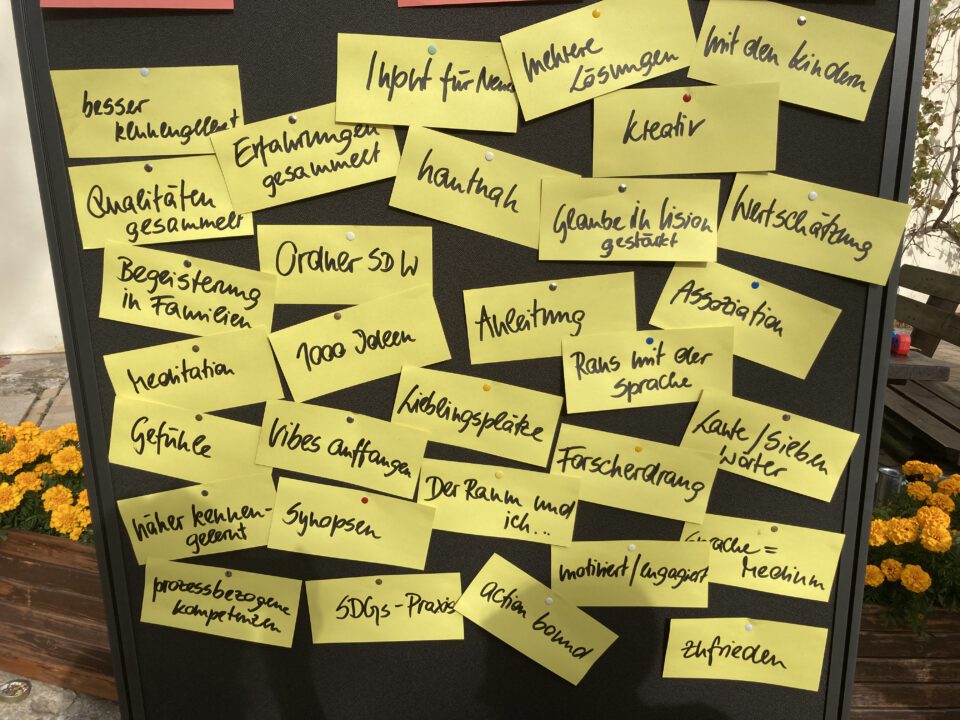 besser
kennengelernt
Erfahrungen
gesammelt
Input für Neue
mehrere
Lösungen
mit den Kindern
kreativ
Qualitäten
gesammelt
hautnah
Glaube in Vision
gestärkt
Wertschätzung
Begeisterung
in Familien
Ordner SDW
Anleitung
Assoziation
Meditation
1000 Ideen
Raus mit der
Sprache
Gefühle
Vibes auffangen
Lieblingsplätze
Forscherdrang
Laute/Sieben
Wörter
näher kennen-
gelernt
Synopsen
Der Raum und
ich...
motiviert/engagiert
Sprache =
Medium
prozessbezogene
Kompetenzen
SDGs-Praxis
action bound
zufrieden